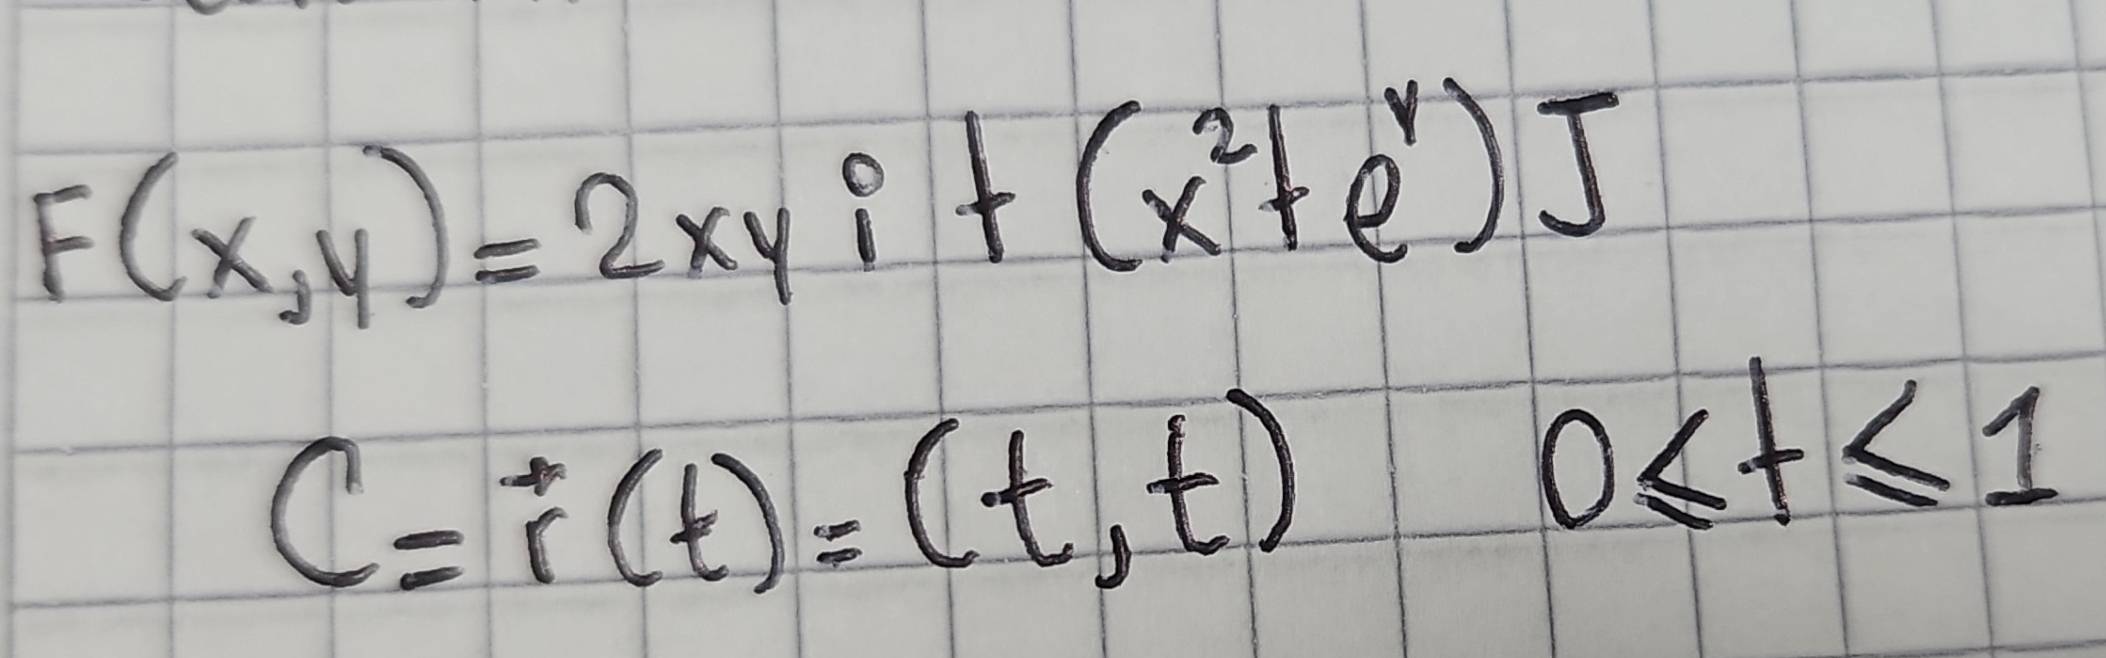 F(x,y)=2xy i + (x²+e^y) J
C = r⃗(t) = (t,t) 0≤t≤1